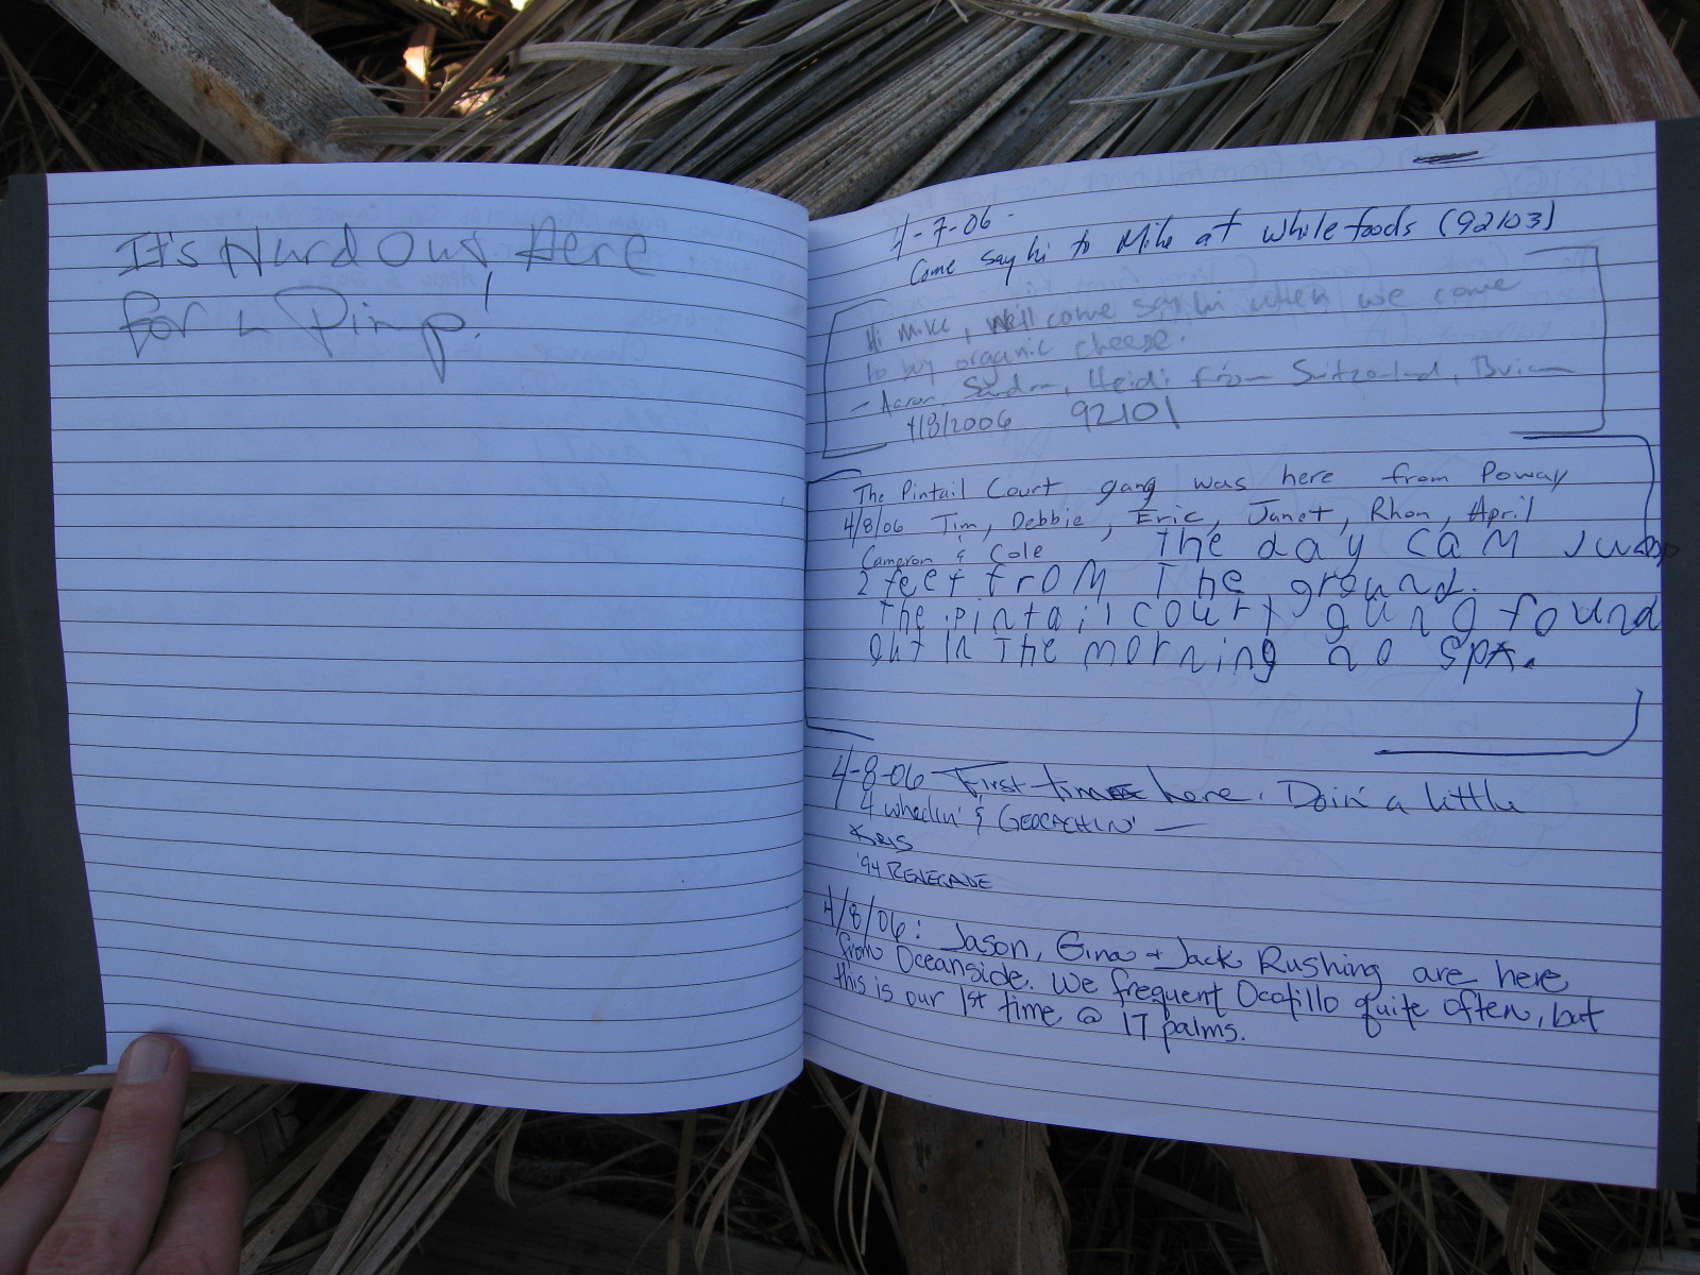 It's Hard Out Here
For a Pimp!
4-7-06 -
Come say hi to Mike at whole foods (92103)
Hi Mike, We'll come say hi when we come
to buy organic cheese.
- Aaron, Heidi from Switzerland,
4/8/2006 92101
The Pintail Court gang was here from Poway
4/8/06 Tim, Debbie, Eric, Janet, Rhon, April
Cameron & Cole the day cam
2 feet from The ground.
the pintail court gang found
out in The morning no spa.
4-8-06 First time here. Doin' a little
4 wheelin' & GEOCACHIN' —
KRIS
'94 RENEGADE
4/8/06: Jason, Gina + Jack Rushing are here
from Oceanside. We frequent Ocotillo quite often, but
this is our 1st time @ 17 palms.